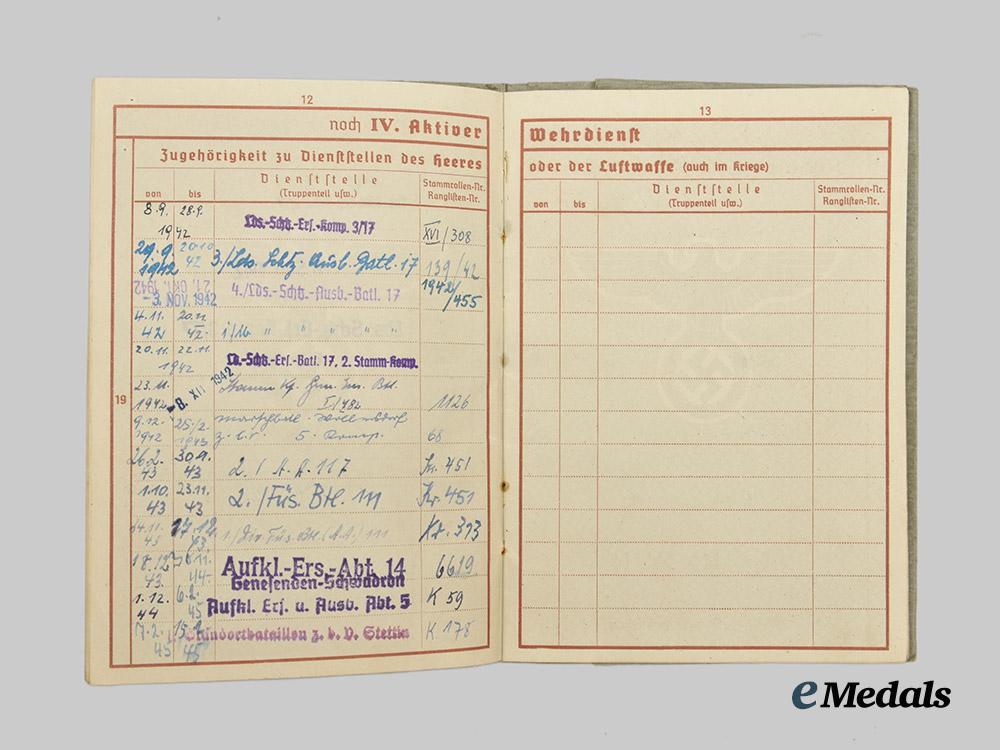 12
noch IV. Aktiver
Zugehörigkeit zu Dienststellen des Heeres
von bis Dienststelle (Truppenteil usw.) Stammrollen-Nr. Ranglisten-Nr.
3.9. 28.9. 1942 Lds.-Schtz.-Ers.-Komp. 3/17 XVI/308
29.9. 1942 20.10 42 3./Lds. Schtz. Ausb. Batl. 17 139/42
21. OKT. 1942 -3. NOV. 1942 4./Lds.-Schtz.-Ausb.-Batl. 17 1942/455
4.11. 42 20.11 42 " " " "
20.11. 22.11. 1942 Ld.-Schtz.-Ers.-Batl. 17, 2. Stamm-Komp.
19
23.11. 1942 -8. XII 1942 Stamm Kp. Gren. Ers. Btl. I/482 1126
9.12. 1942 25/2. 1943 Marschbatl. z.b.V. 5. Komp. 68
26.2. 43 30.9. 43 2./A.A. 117 Kr. 451
1.10. 43 23.11. 43 2./Füs. Btl. 111 Kr. 451
24.11. 43 17.12. 43 1./Div. Füs. Btl. (A.A.) 111 Kr. 393
18.12. 43. 11. 44 Aufkl.-Ers.-Abt. 14 6619
Genesenden-Schwadron
1.12. 44 6.2. 45 Aufkl. Ers. u. Ausb. Abt. 5 K 59
7.2. 45 15. 45 Standortbataillon z. b. V. Stettin K. 178
13
Wehrdienst
oder der Luftwaffe (auch im Kriege)
von bis Dienststelle (Truppenteil usw.) Stammrollen-Nr. Ranglisten-Nr.
eMedals